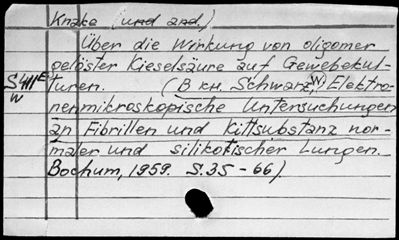 Knake (und and.)
Über die Wirkung von oligomer
gelöster Kieselsäure auf Gewebekul-
turen. (B кн. Schwarz, W. Elektro-
nenmikroskopische Untersuchungen
an Fibrillen und Kittsubstanz nor-
maler und silikotischer Lungen.
Bochum, 1959. S. 35-66).
W